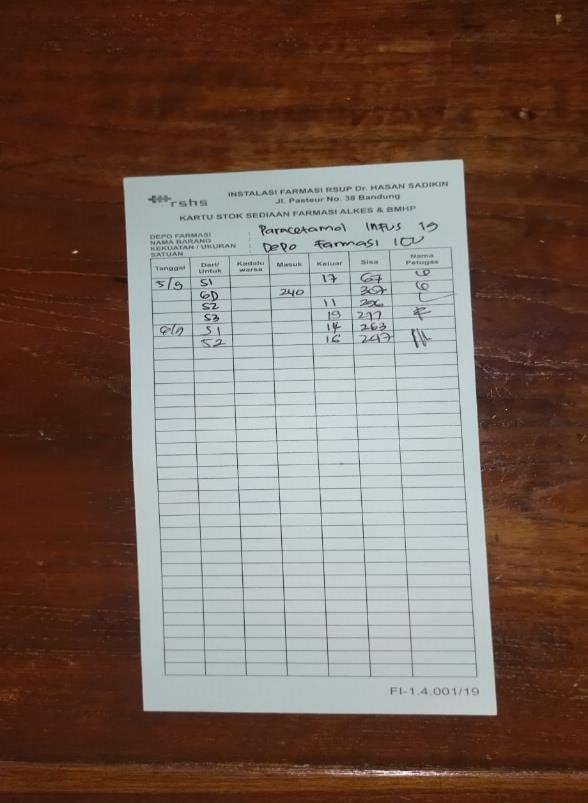 rshs
INSTALASI FARMASI RSUP Dr. HASAN SADIKIN
Jl. Pasteur No. 38 Bandung
KARTU STOK SEDIAAN FARMASI ALKES & BMHP
DEPO FARMASI : Paracetamol Infus 1g
NAMA BARANG :
KEKUATAN / UKURAN : Depo Farmasi ICU
SATUAN
Tanggal Dari/ Untuk Kadalu warsa Masuk Keluar Sisa Nama Petugas
5/9 S1 17 67
GD 240 307
S2 11 296
S3 19 277
6/9 S1 14 263
S2 16 247
FI-1.4.001/19